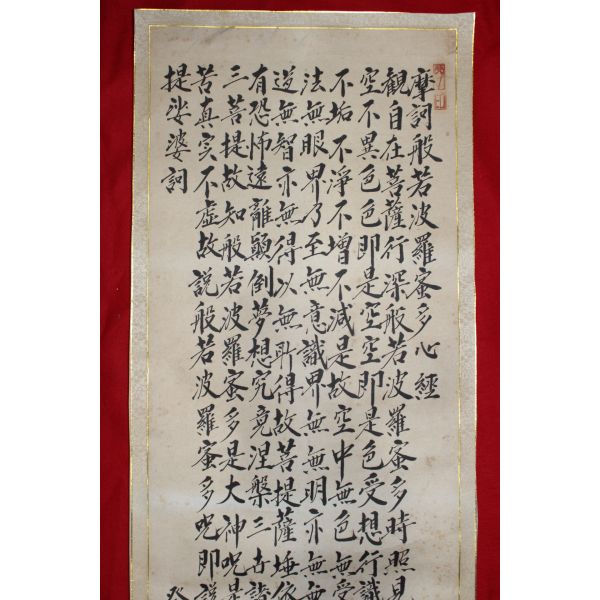 摩訶般若波羅蜜多心經
観自在菩薩行深般若波羅蜜多時照見
空不異色色即是空空即是色受想行識
不垢不淨不增不減是故空中無色無受
法無眼界乃至無意識界無無明亦無無
道無智亦無得以無所得故菩提薩埵依
有恐怖遠離顚倒夢想究竟涅槃三世諸
三菩提故知般若波羅蜜多是大神呪是
苦真实不虚故説般若波羅蜜多呪即説
提娑婆訶